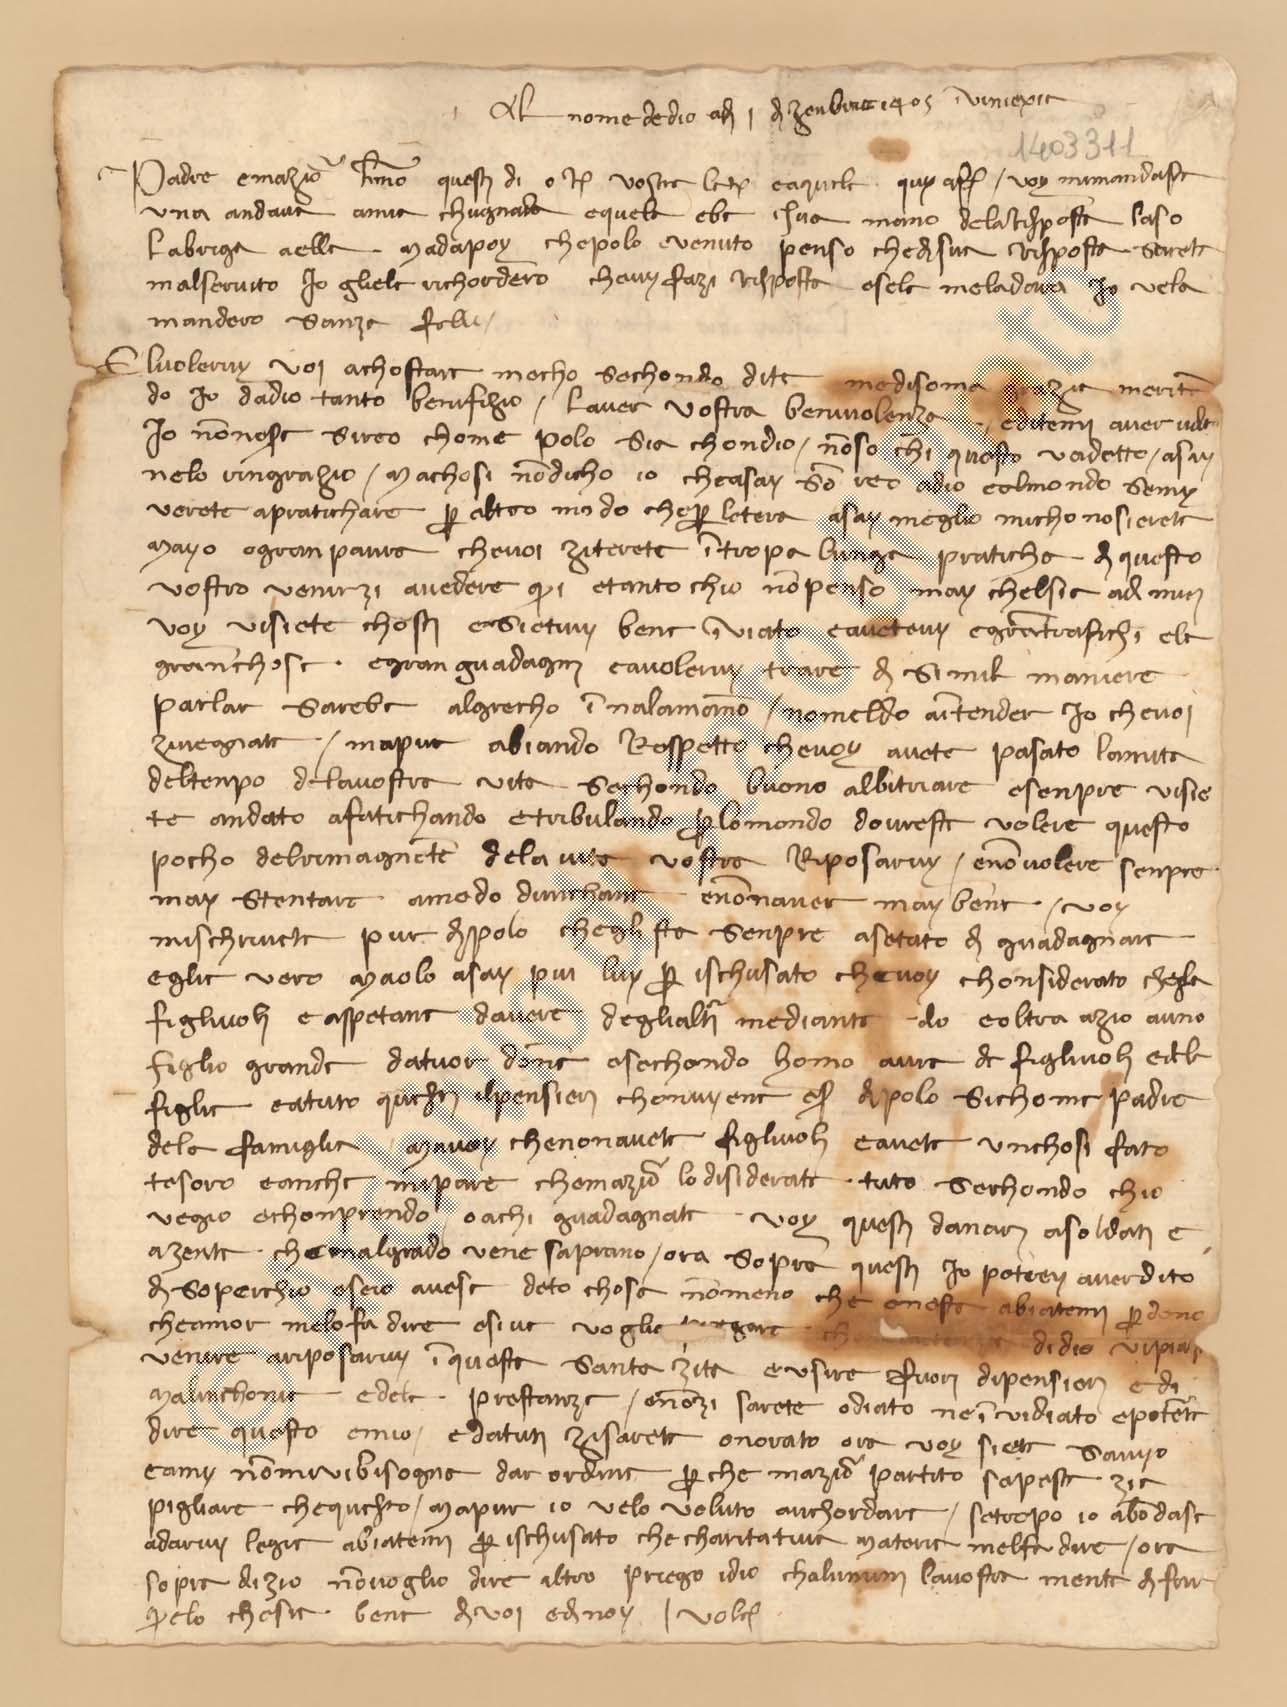 Al nome de dio adi 1 di zenbure 1405 i viniexia
1403311
Padre e mazior timo questi di o R vostre letere e a quele qui apso / voy mi mandaste
una andava a mia chugnada e quela ebe i sua mano de la risposta laso
la briga a ella. Ma da poy che polo e venuto penso che di sua risposta sarete
mal servito Io gliele richordero che vi fazi risposta e sela me la dara Io vela
mandero sanza falo /
El volervi voi achostare mecho sechondo dite me di soma grazia merita
do Io da dio tanto benifizio / l aver vostra benivolenza / e ditemi aver udito
Io non esse si reo chome polo sia chon dio / non so chi questo v a detto / asay
ne lo ringrazio / Ma chosi non dicho io che asay son reo a dio e al mondo se mi
verete a pratichare per altro modo che per letera asay meglio mi chonosierete
Mayo o gran paura che voi ziterete i tropa lunga praticha di questo
vostro venirzi a vedere qui e tanto ch io non penso may che l sia ad min
voy vi siete chosti e sietevi bene inviato e avetevi e gran trafichi e le
gran chose. e gran guadagni e a volervi trare di simil maniere
parlar sarebe al grecho in alamano / no me l do a intender Io che voi
zivegnate / ma pure abiando Respetto che voy avete pasato la mita
del tenpo de la vostra vita sechondo buono albitriare e senpre visie
te andato afatichando e tribulando per lo mondo dovreste volere questo
pocho del rimagnente de la vita vostra Riposarvi / e non volere senpre
may stentare a modo d un chane e non aver may bene / voy
mi schrivete pur di polo che gli sta senpre asetato di guadagnare
e glie vero Ma o lo asay piu lui per ischusato che voy chonsiderato ch egli a
figliuoli e aspetane d avere degli altri mediante dio e oltra a zio a uno
figlio grande da tuor dona e sechondo homo ave de figliuoli e de le
figlie e a tuto questi i pensieri che nuy ene esso di polo si chome padre
de la famiglia Ma voy che non avete figliuoli e avete un chosi fato
tesoro e anche mi pare che mazior lo disiderate. tuto sechondo ch io
vegio e chonprendo / o a chi guadagnate voy questi danari a soldati e
a zente. che mal grado vene saprano / ora sopra questi Io potrey aver dito
di soperchio e se io avese deto chosa no meno che onesta abiatemi perdono
che amor me lo fa dire e si ve voglio pregare che di dio vi piacia
venire a riposarvi i questa santa zita e usire fuori di pensieri e di
malinchonie e dele prestanze / e non zi sarete odiato ne invidiato e potete
dire questo e mio / e da tuti zi sarete onorato ora voy siete savyo
e a my non mi vi bisogna dar ordine per che mazior partito sapeste zie
pigliare che questo / Ma pure io ve lo voluto arichordare / se tropo io abondase
a darvi legie abiatemi per ischusato che charitativa materia me l fa dire / ora
sopra di zio non voglio dire altro priego idio ch alumini la vostra mente di far
quelo che sia bene di voi e di noy / volti